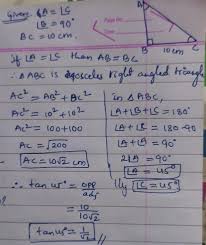 Given: ∠A = ∠C
∠B = 90°
BC = 10cm.
A
B
10cm
C
If ∠A = ∠C than AB = BC
∴ ΔABC is isosceles right angled triangle
AC² = AB² + BC²
AC² = 10² + 10²
AC² = 100+100
AC = √200
AC = 10√2 cm
in ΔABC,
∠A+∠B+∠C = 180°
∠A + ∠B = 180-90
∠A + ∠C = 90°
2∠A = 90°
∠A = 45°
∴ tan45° = opp/adj
lly ∠C = 45°
= 10/10√2
tan45° = 1/√2